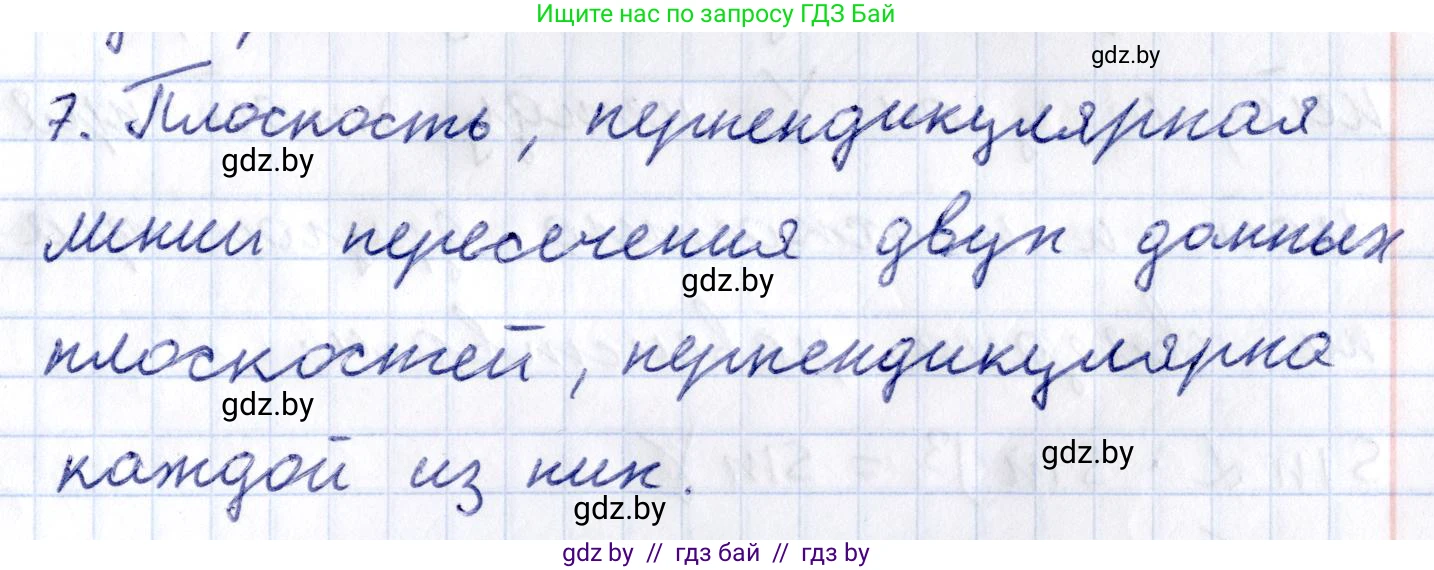 Ищите нас по запросу ГДЗ Бай
gdz.by
7. Плоскость, перпендикулярная
gdz.by
линии пересечения двух данных
gdz.by
плоскостей, перпендикулярна
gdz.by
каждой из них.
gdz.by
gdz.by
gdz by // гдз бай // гдз by